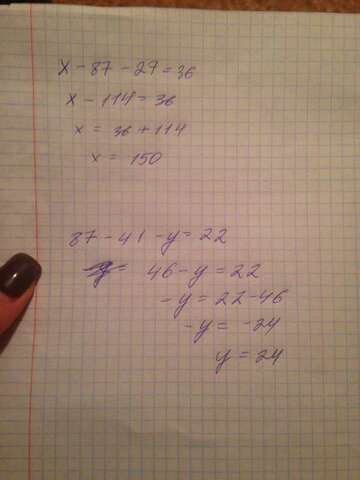 x - 87 - 27 = 36
x - 114 = 36
x = 36 + 114
x = 150
87 - 41 - y = 22
46 - y = 22
- y = 22 - 46
- y = - 24
y = 24